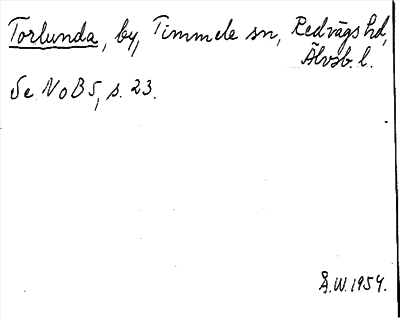 Torlunda, by, Timmele sn, Redvägs hd,
Älvsb. l.
Se NoB 5, s. 23.
Å.W. 1954.